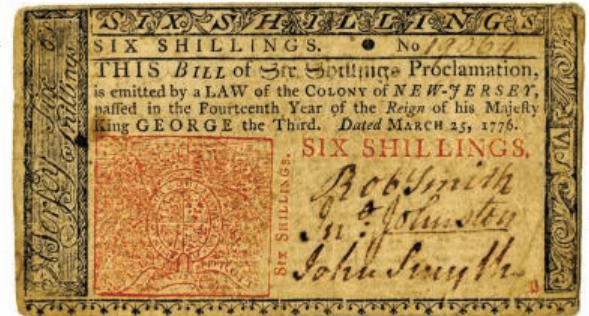 SIX SHILLINGS
SIX SHILLINGS. No 19364
THIS BILL of Six Shillings Proclamation,
is emitted by a LAW of the COLONY of NEW-JERSEY,
paſſed in the Fourteenth Year of the Reign of his Majeſty
King GEORGE the Third. Dated MARCH 25, 1776.
SIX SHILLINGS.
SIX SHILLINGS.
Rob Smith
Jno. Johnston
John Smyth
B
Jerſey
Shillings
SIX